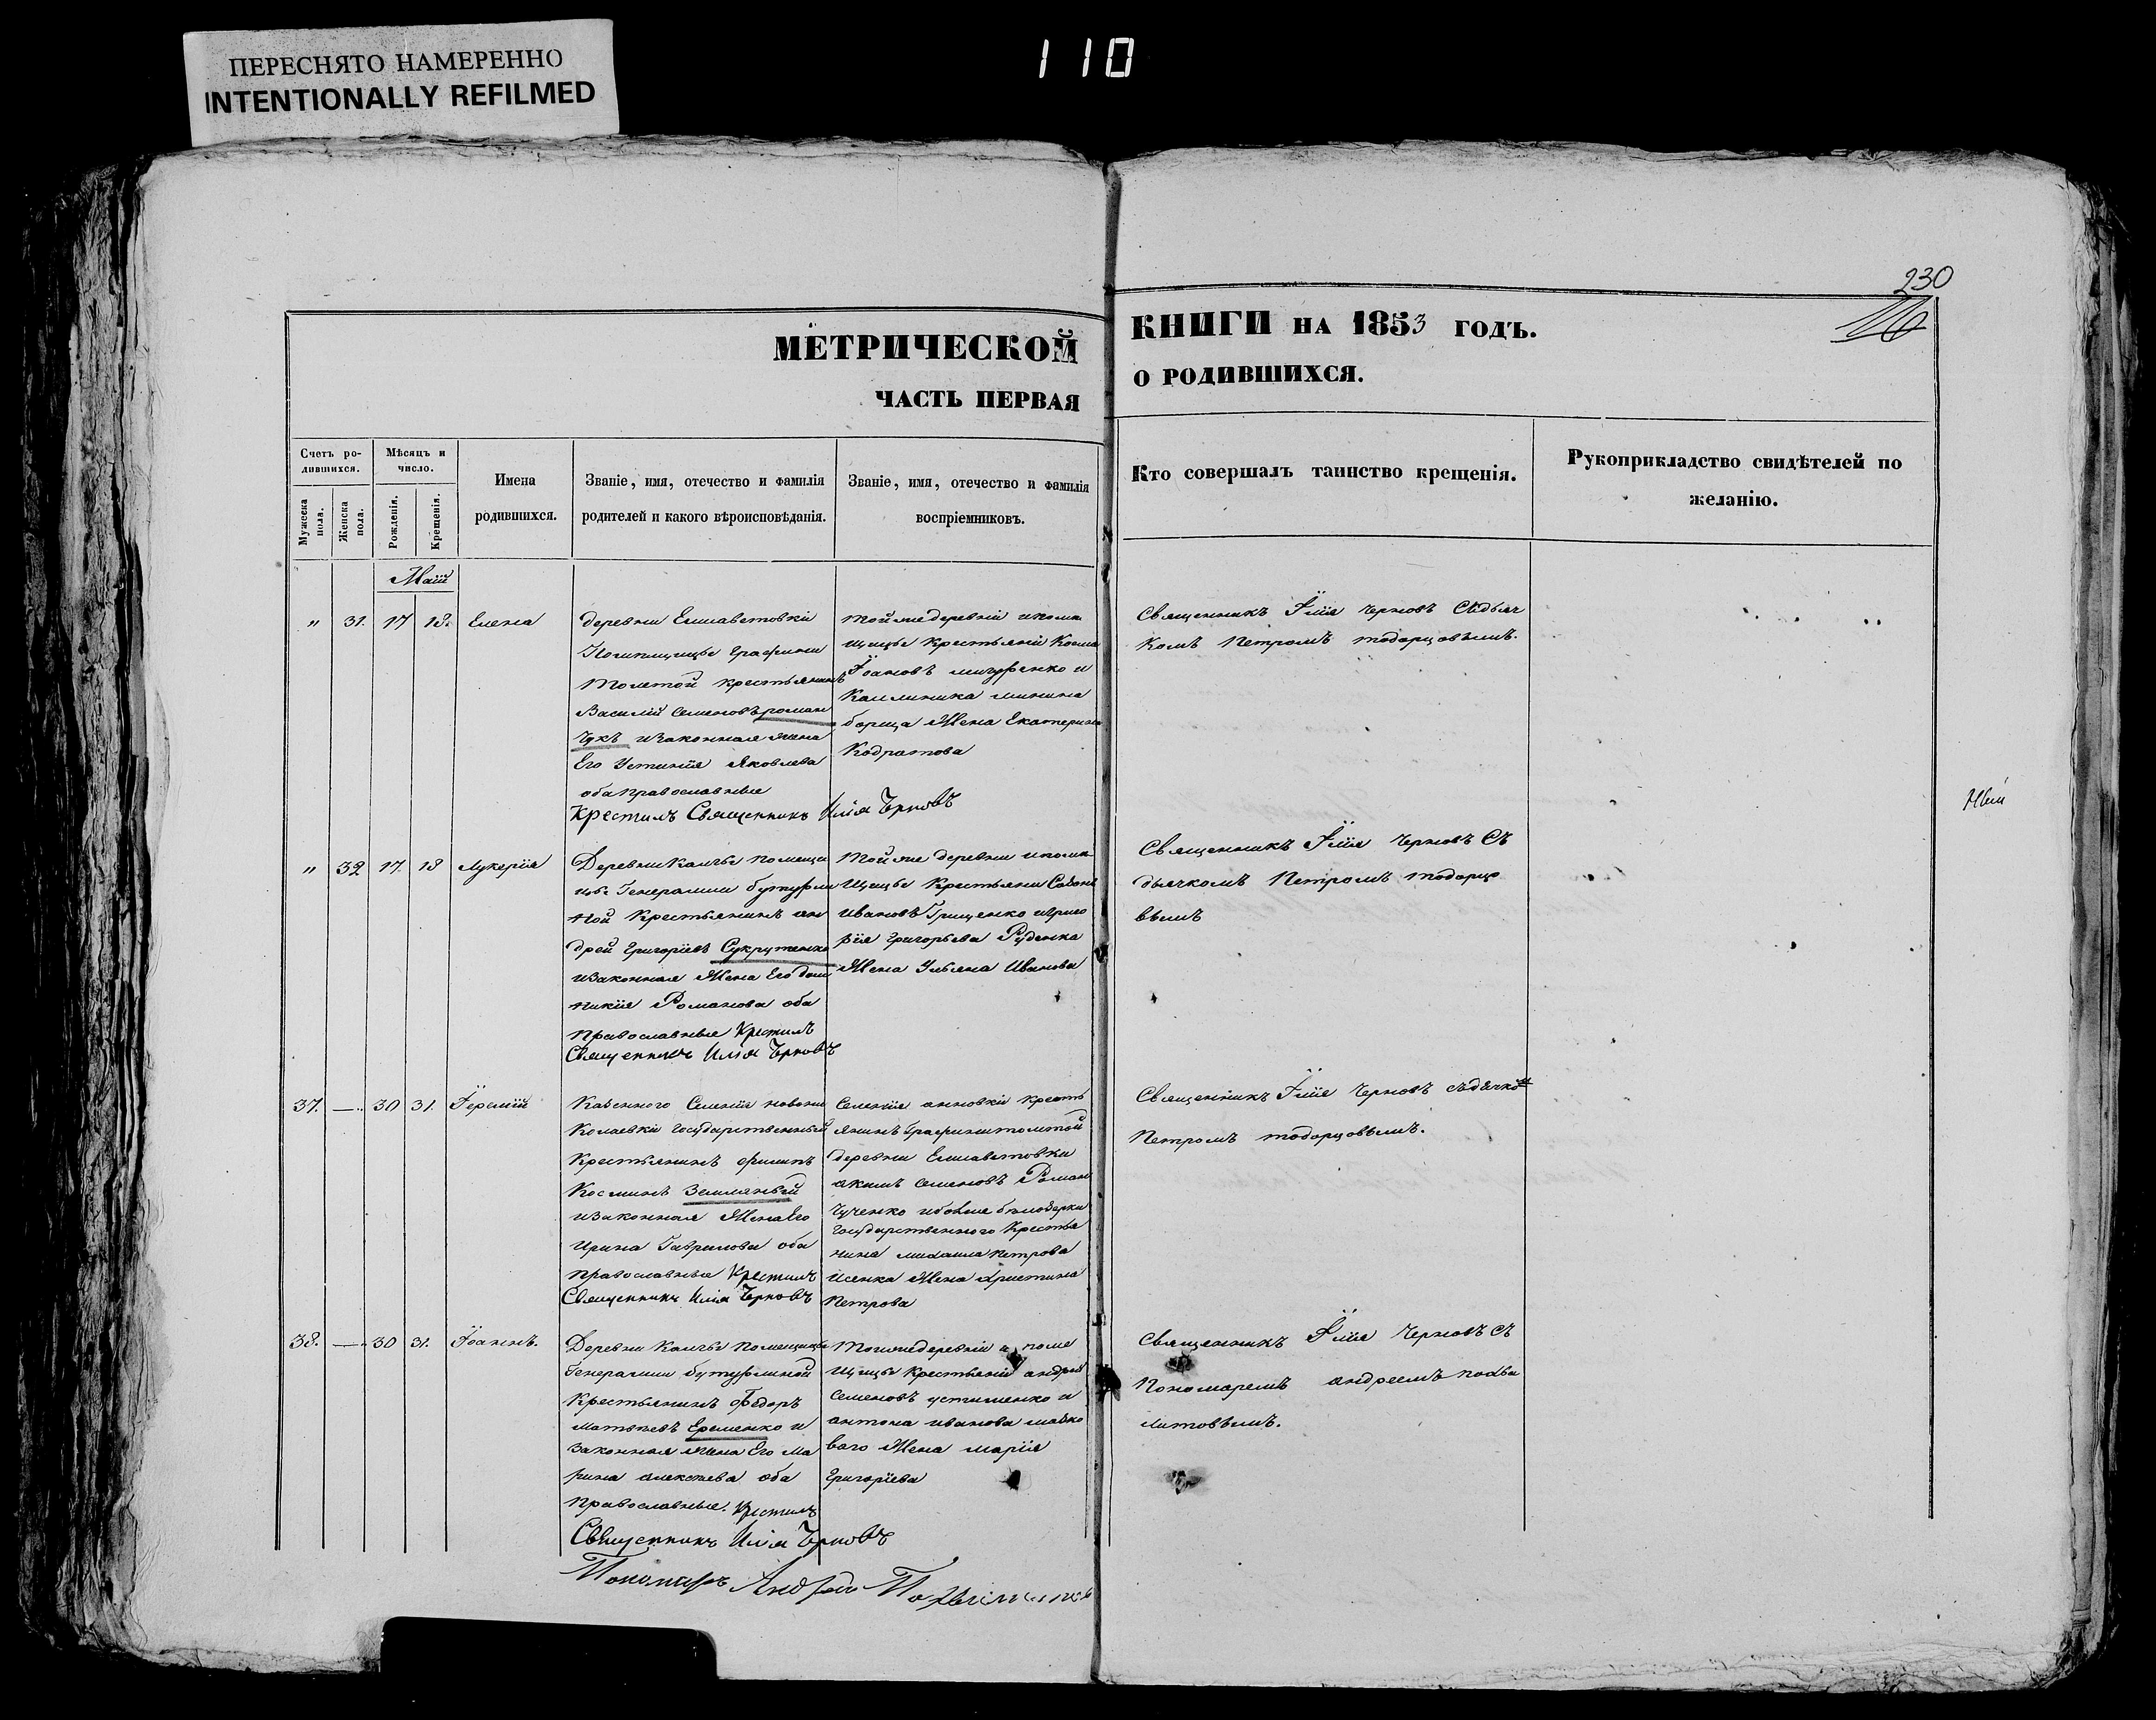 ПЕРЕСНЯТО НАМЕРЕННО
INTENTIONALLY REFILMED
110
230
МЕТРИЧЕСКОЙ КНИГИ НА 1853 ГОДЪ.
ЧАСТЬ ПЕРВАЯ О РОДИВШИХСЯ.
Счетъ ро-
дившихся.
Мужеска
пола.
Женска
пола.
Мѣсяцъ и
число.
Рожденія.
Крещенія.
Имена
родившихся.
Званіе, имя, отечество и фамилія
родителей и какого вѣроисповѣданія.
Званіе, имя, отечество и фамилія
воспріемниковъ.
Кто совершалъ таинство крещенія.
Рукоприкладство свидѣтелей по
желанію.
Маій
„ 31. 17 18. Елена
деревни Елисаветовкі
Помещицы Графини
Толстой крестьянинъ
Василій Семеновъ роман
чукъ изаконная жена
Его Устинія Яковлева
оба православные
Крестилъ Священникъ Илія Черновъ
тойже деревни
щицы крестьяни Косма
Іоановъ и
Калиника
жена Екатерина
Кодратова
Священникъ Ілія Черновъ Сѣдьяч
комъ Петромъ тодорцовымъ.
„ 32 17. 18 Лукерія
Деревни Камчы помещи
цы Генералши бутурли
ной Крестьянинъ ан
дрей Григоріевъ Сукруженко
изаконная Жена Его дом
никия Романова оба
православные Крестилъ
Священникъ Илія Черновъ
Тойже деревни ипоме
щицы Крестьяни
Ивановъ Грищенко игриго
рія Григорьева Руденка
Жена Ульяна Иванова
Священникъ Ілія Черновъ Съ
дьячкомъ Петромъ тодорцо
вымъ
37. — 30 31. Іеремій
Казенного Селенія новони
колаевки Государственный
Крестьянинъ филипъ
Косминъ Земляный
изаконная Жена Его
Ирина Гаврилова оба
православные Крестилъ
Священникъ Илія Черновъ
Селенія анновкі кресть
янинъ Графинитолстой
деревни Елисаветовки
акимъ Семеновъ Роман
ченко
государственного Крестья
нина михаила петрова
Жена Христина
Петрова
Священникъ Ілія Черновъ
Петромъ тодорцовымъ.
38. — 30 31. Іоаннъ.
Деревни Камчы Помещицы
Генералши бутурлиной
Крестьянинъ Федоръ
матвеевъ Еременко и
законная жена Его Ма
рина алексеева оба
православные. Крестилъ
Священникъ Илія Черновъ
Тоижедеревни и поме
щицы крестьяни андрей
Семеновъ устименко и
антона иванова
ваго Жена марія
Григоріева
Священникъ Ілія Черновъ Съ
Пономаремъ андреемъ
Пономарь Андрей